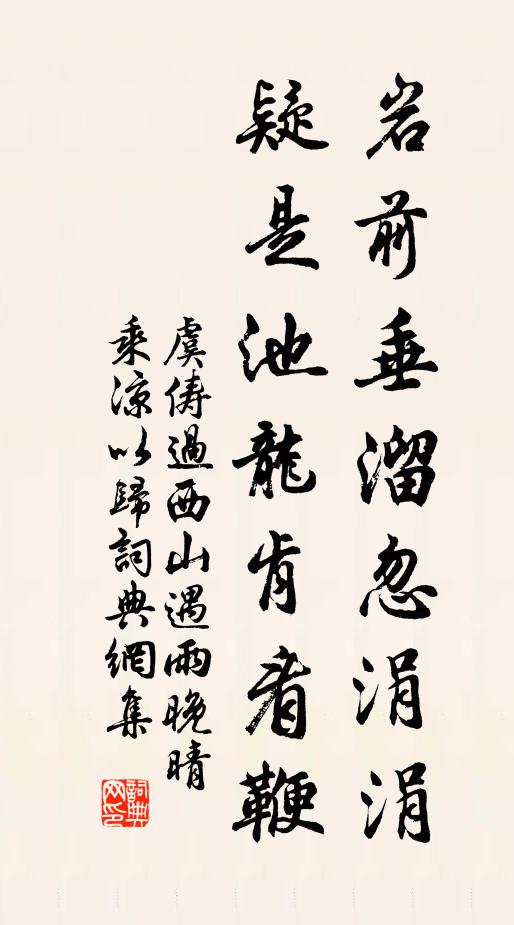 岩前垂溜忽涓涓
疑是池龍肯着鞭
虞儔過西山遇雨晚晴
乘涼以歸詞典網集
詞典
网印